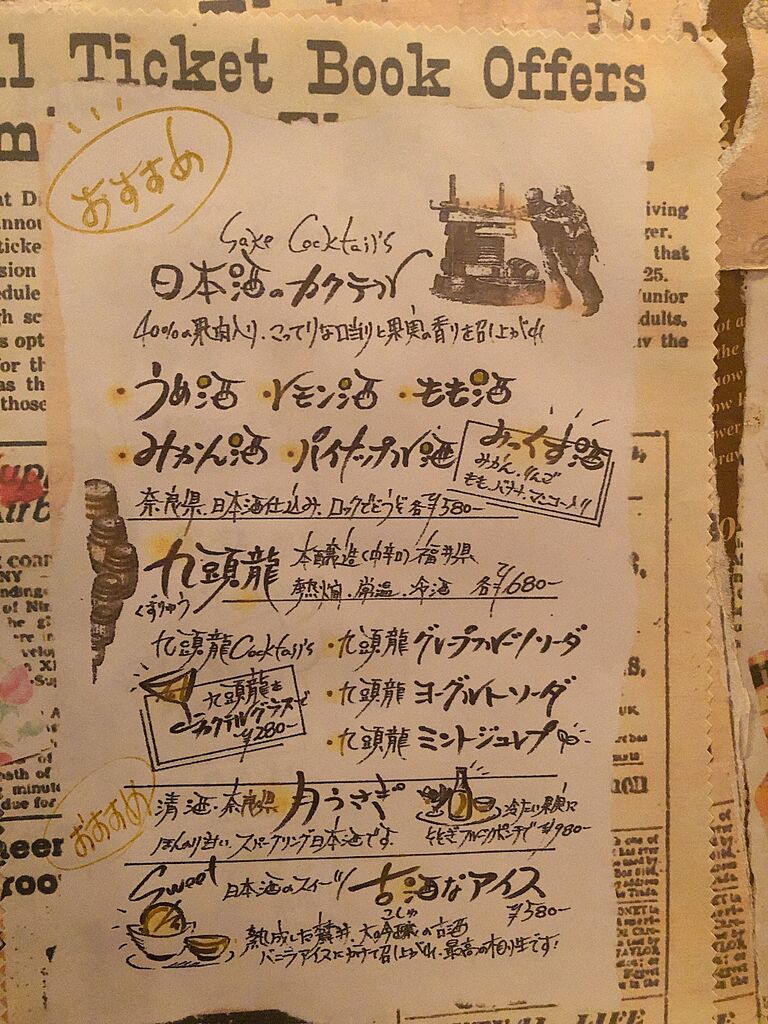 l Ticket Book Offers
おすすめ
Sake Cocktail's
日本酒のカクテル
40%の果肉入り、こってりな口当りと果実の香りを召し上がれ
・うめ酒 ・レモン酒 ・もも酒
・みかん酒 ・パイナップル酒
みっくす酒
みかん、りんご
もも、バナナ、マンゴー入り
奈良県、日本酒仕込み、ロックでどうぞ 各¥580-
九頭龍 本醸造(中辛口)福井県
くずりゅう
熱燗、常温、冷酒 各¥680-
九頭龍Cocktail's ・九頭龍グレープフルーツソーダ
・九頭龍 ヨーグルトソーダ
・九頭龍 ミントジュレプ
九頭龍を
カクテルグラスで
¥280-
おすすめ
清酒・奈良県 月うさぎ
ほんのり甘い、スパークリング日本酒です。
冷たい果実に
そそぎフルーツポンチで ¥980-
Sweet 日本酒のスイーツ 古酒なアイス
こしゅ
¥580-
熟成した 大吟醸の古酒
バニラアイスにかけて召し上がれ、最高の相性です!
iving
ger.
that
25.
unfor
dults,
at D
annou
ticke
sion
edule
h sc
opt
or th
as th
those